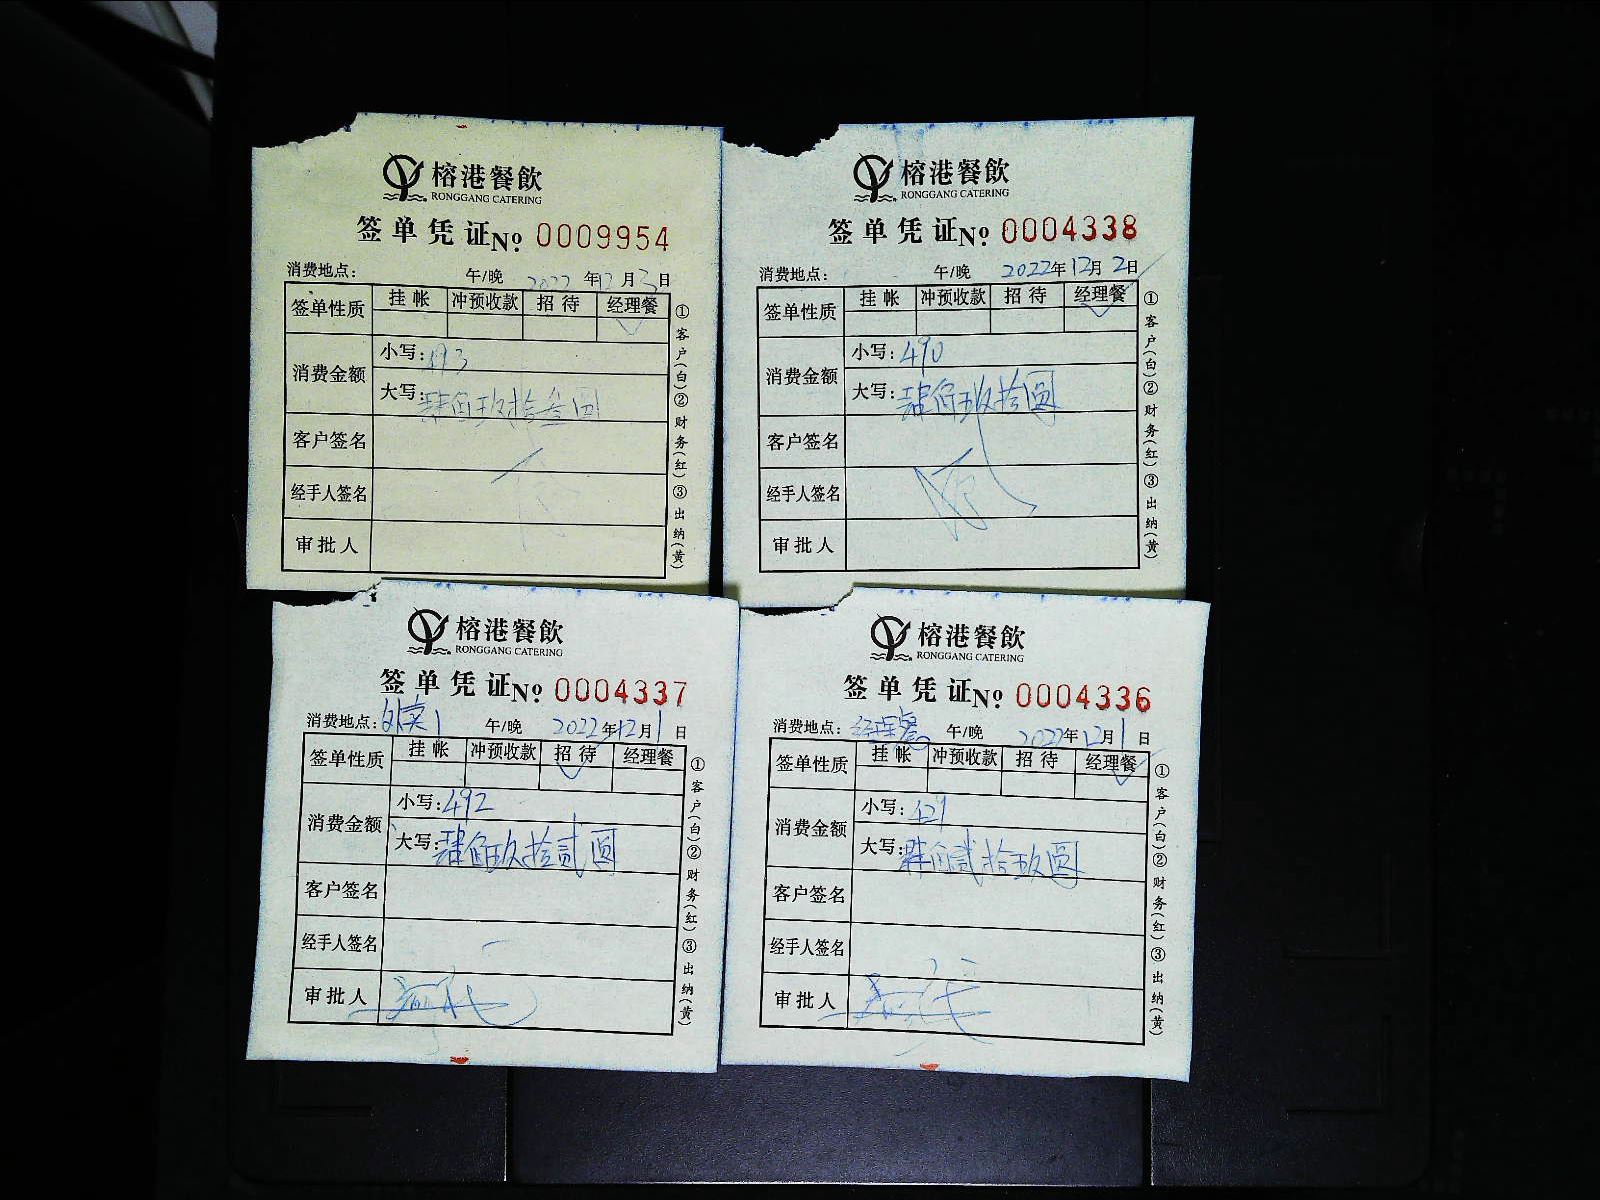 榕港餐飲
RONGGANG CATERING
签单凭证 Nº 0009954
消费地点: 午/晚 2022年12月3日
签单性质 挂帐 冲预收款 招待 经理餐
✓
消费金额 小写: 493
大写: 肆佰玖拾叁圆
客户签名
经手人签名
审批人
①客户(白)②财务(红)③出纳(黄)
榕港餐飲
RONGGANG CATERING
签单凭证 Nº 0004338
消费地点: 午/晚 2022年12月2日
签单性质 挂帐 冲预收款 招待 经理餐
✓
消费金额 小写: 490
大写: 肆佰玖拾圆
客户签名
经手人签名
审批人
①客户(白)②财务(红)③出纳(黄)
榕港餐飲
RONGGANG CATERING
签单凭证 Nº 0004337
消费地点: 外卖1 午/晚 2022年12月1日
签单性质 挂帐 冲预收款 招待 经理餐
✓
消费金额 小写: 492
大写: 肆佰玖拾贰圆
客户签名
经手人签名
审批人
①客户(白)②财务(红)③出纳(黄)
榕港餐飲
RONGGANG CATERING
签单凭证 Nº 0004336
消费地点: 经理餐 午/晚 2022年12月1日
签单性质 挂帐 冲预收款 招待 经理餐
✓
消费金额 小写: 429
大写: 肆佰贰拾玖圆
客户签名
经手人签名
审批人
①客户(白)②财务(红)③出纳(黄)